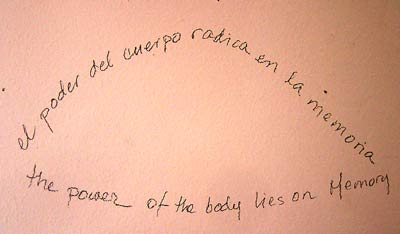 el poder del cuerpo radica en la memoria
the power of the body lies on Memory